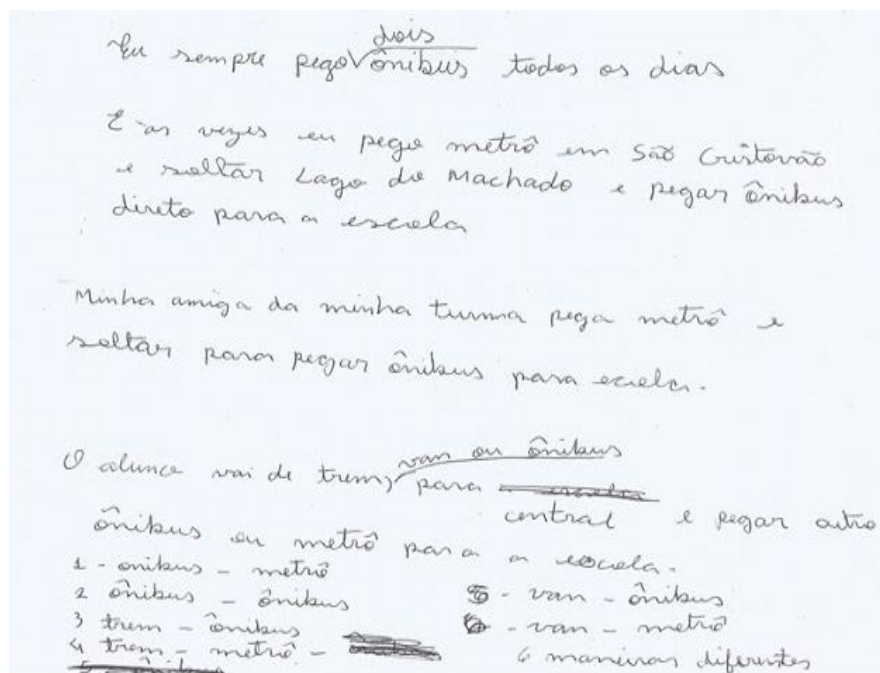 Eu sempre pego dois ônibus todos os dias
E as vezes eu pego metrô em São Cristovão
e soltar Lago do Machado e pegar ônibus
direto para a escola
Minha amiga da minha turma pega metrô e
soltar para pegar ônibus para escola.
O alunca vai de trem, van ou ônibus para central e pegar outro
ônibus ou metrô para a escola.
1 - onibus - metrô
2 ônibus - ônibus
3 trem - ônibus
4 trem - metrô -
5 - van - ônibus
6 - van - metrô
6 maneiras diferentes